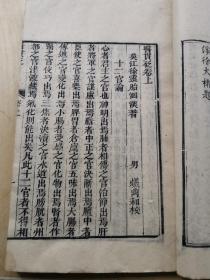 徐大椿題
醫貫砭卷上
吳江徐靈胎洄溪著
男
十二官論
心者君主之官也神明出焉肺者相傅之官治節出焉肝
者將軍之官謀慮出焉膽者中正之官決斷出焉膻中者
臣使之官喜樂出焉脾胃者倉廩之官五味出焉大腸者
傳道之官變化出焉小腸者受盛之官化物出焉腎者作
強之官伎巧出焉三焦者決瀆之官水道出焉膀胱者州
都之官津液藏焉氣化則能出矣凡此十二官者不得相